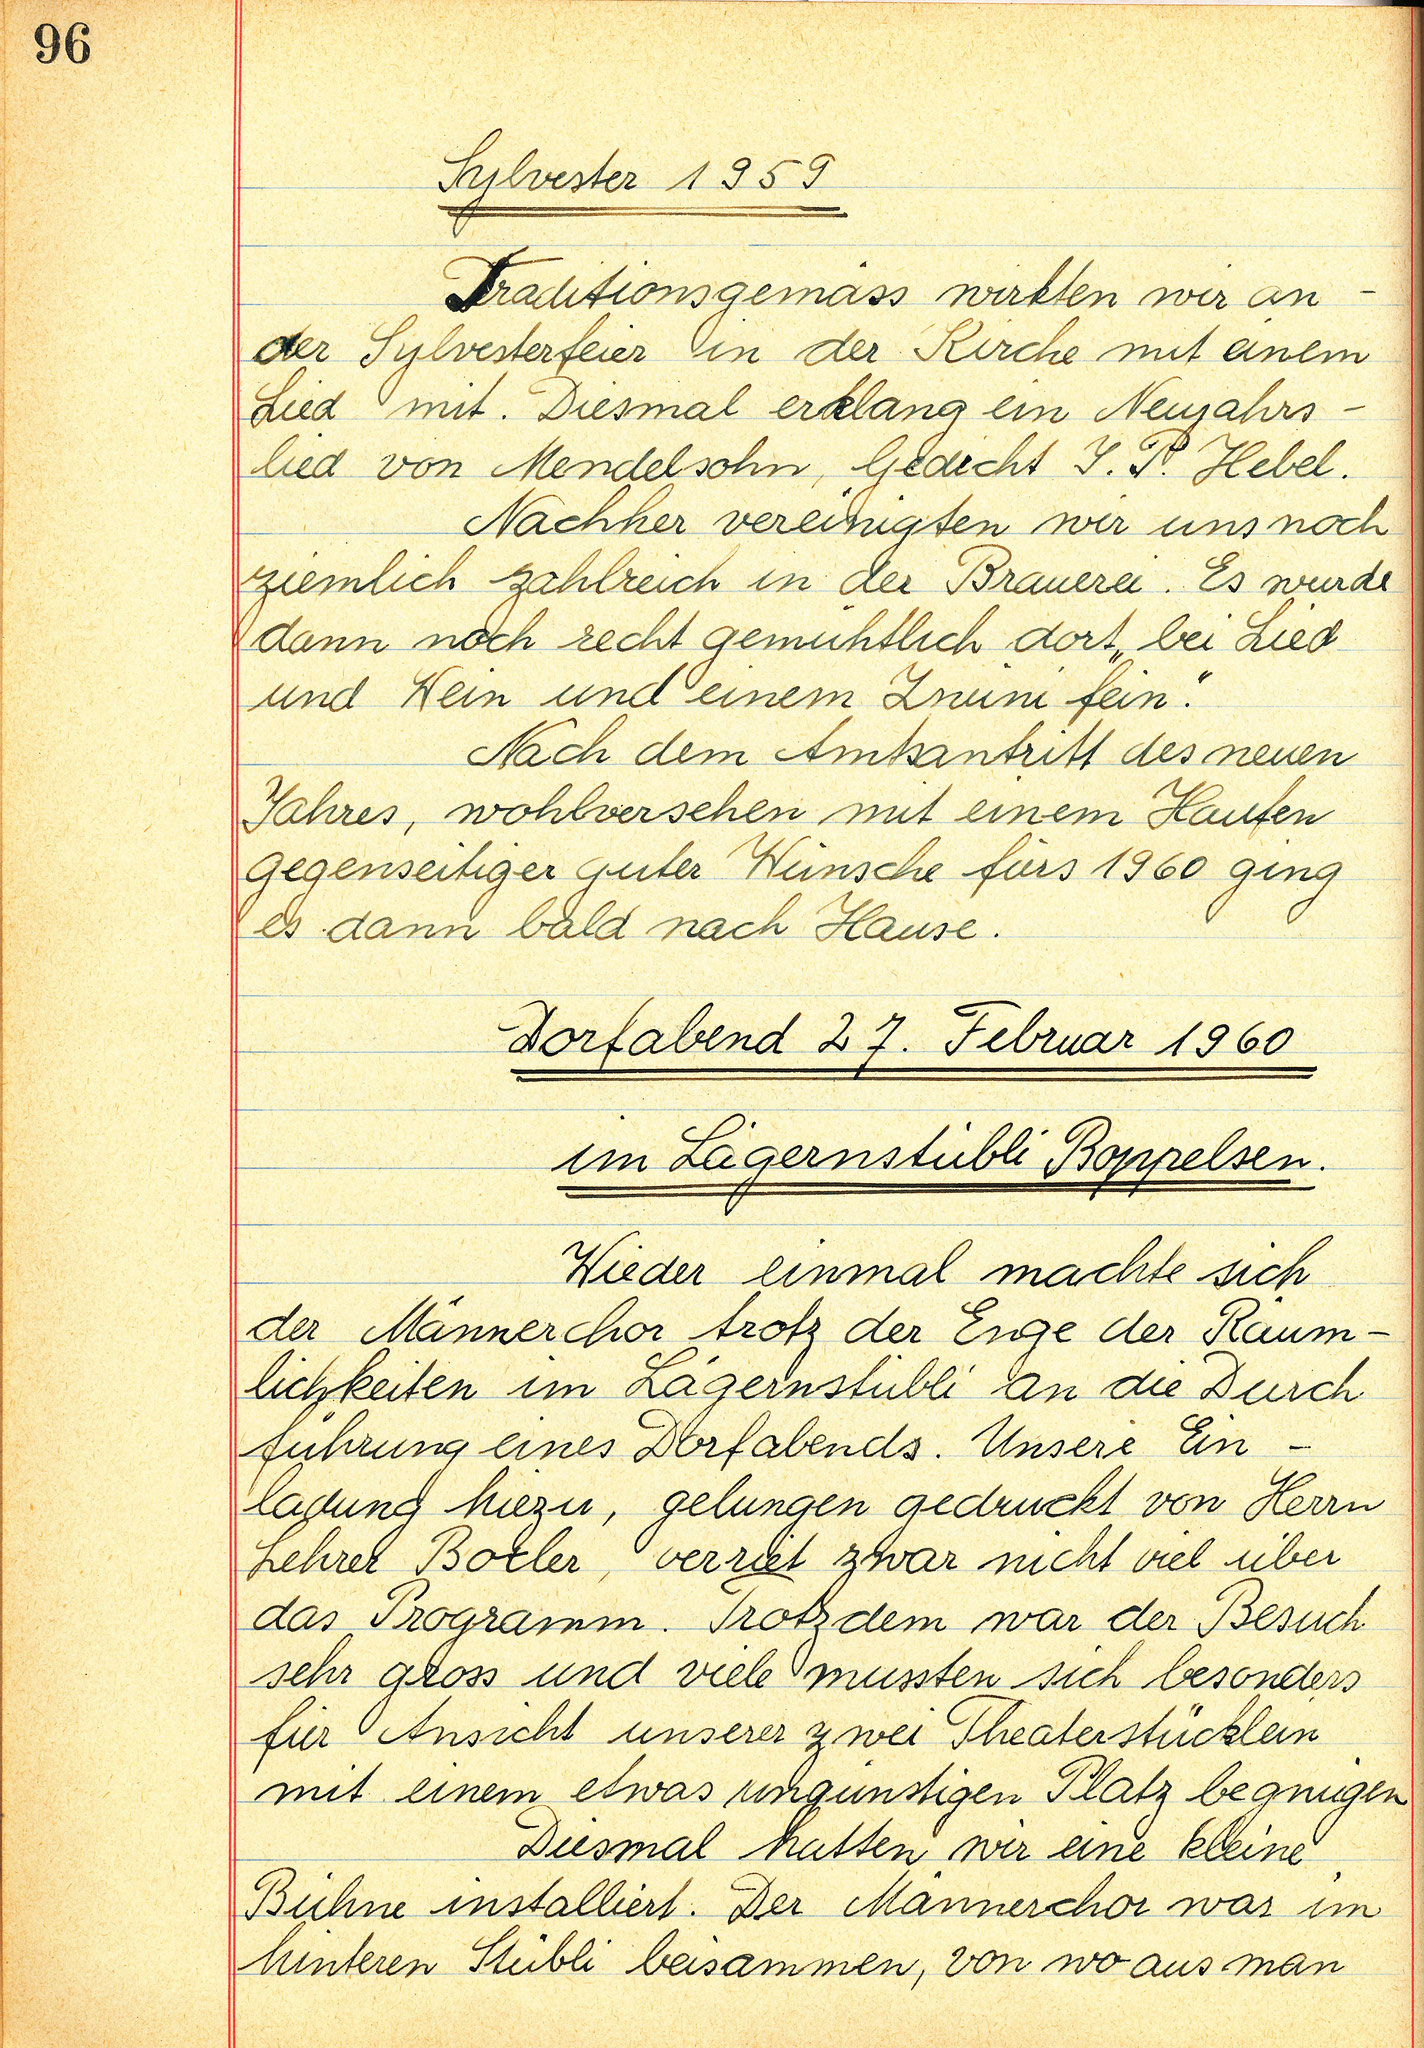 96
Sylvester 1959
Traditionsgemäss wirkten wir an -
der Sylvesterfeier in der Kirche mit einem
Lied mit. Diesmal erklang ein Neujahrs -
lied von Mendelsohn, Gedicht J. P. Hebel.
Nachher vereinigten wir uns noch
ziemlich zahlreich in der Brauerei. Es wurde
dann noch recht gemühtlich dort „bei Lied
und Wein und einem Znüni fein."
Nach dem Amtsantritt des neuen
Jahres, wohlversehen mit einem Haufen
gegenseitiger guter Wünsche fürs 1960 ging
es dann bald nach Hause.
Dorfabend 27. Februar 1960
im Lägernstübli Boppelsen.
Wieder einmal machte sich
der Männerchor trotz der Enge der Räum-
lichkeiten im Lägernstübli an die Durch
führung eines Dorfabends. Unsere Ein -
ladung hiezu, gelungen gedruckt von Herrn
Lehrer, verriet zwar nicht viel über
das Programm. Trotzdem war der Besuch
sehr gross und viele mussten sich besonders
für Ansicht unserer zwei Theaterstücklein
mit einem etwas ungünstigen Platz begnügen
Diesmal hatten wir eine kleine
Bühne installiert. Der Männerchor war im
hinteren Stübli beisammen, von wo aus man